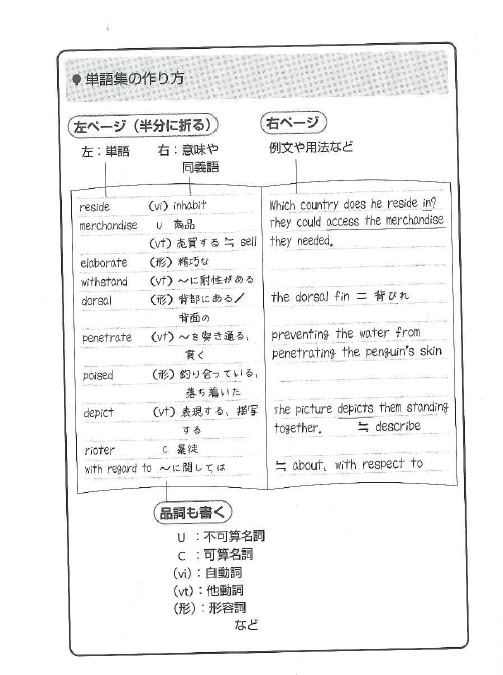 単語集の作り方
左ページ（半分に折る）
右ページ
左：単語
右：意味や
同義語
例文や用法など
reside (vi) inhabit
Which country does he reside in?
merchandise U 商品
They could access the merchandise
(vt) 売買する ≒ sell
they needed.
elaborate (形) 精巧な
withstand (vt) 〜に耐性がある
dorsal (形) 背部にある／
the dorsal fin ＝ 背びれ
背面の
penetrate (vt) 〜を突き通る、
preventing the water from
貫く
penetrating the penguin's skin
poised (形) 釣り合っている、
落ち着いた
depict (vt) 表現する、描写
The picture depicts them standing
する
together. ≒ describe
rioter C 暴徒
with regard to 〜に関しては
≒ about, with respect to
品詞も書く
U ：不可算名詞
C ：可算名詞
(vi)：自動詞
(vt)：他動詞
(形)：形容詞
など